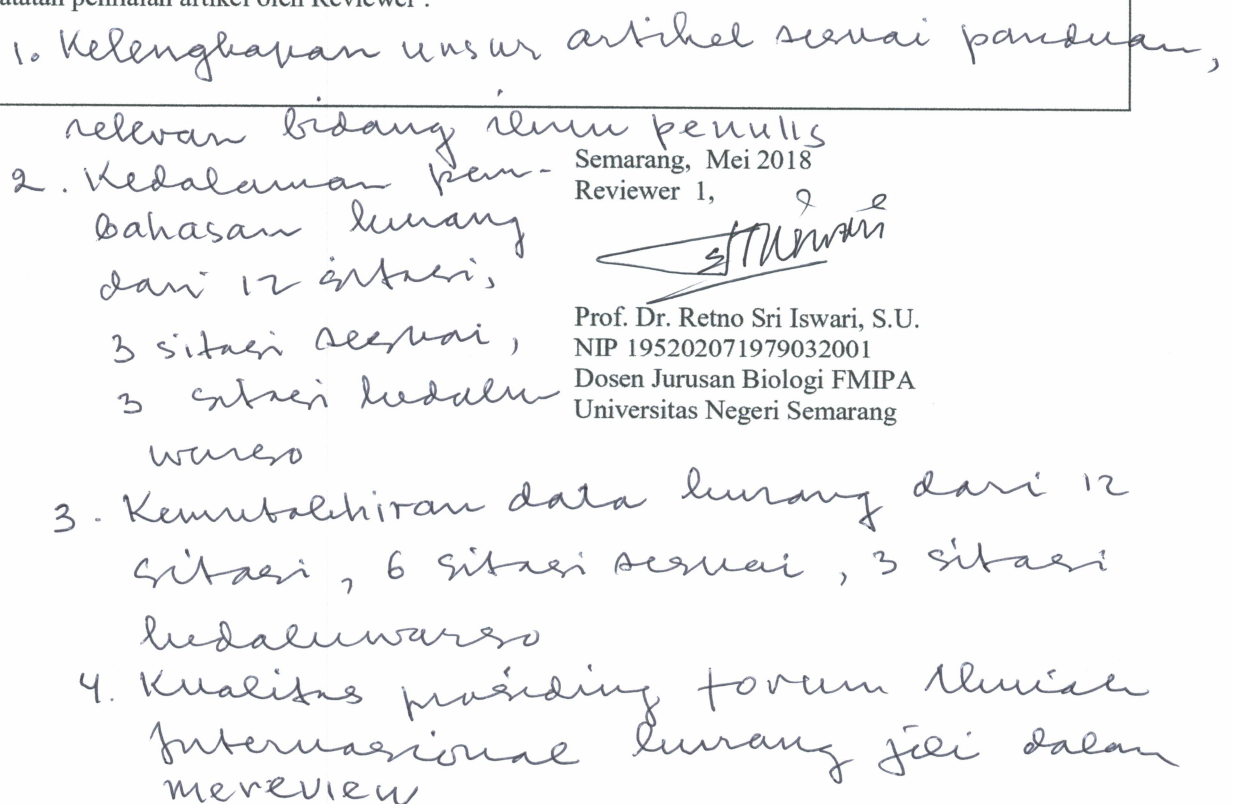 penilaian artikel oleh Reviewer :
1. Kelengkapan unsur artikel sesuai panduan,
relevan bidang ilmu penulis
2. Kedalaman pem-
bahasan kurang
dari 12 sitasi,
3 sitasi sesuai,
3 sitasi kedalu
warso
Semarang, Mei 2018
Reviewer 1,
Prof. Dr. Retno Sri Iswari, S.U.
NIP 195202071979032001
Dosen Jurusan Biologi FMIPA
Universitas Negeri Semarang
3. Kemutakhiran data kurang dari 12
sitasi, 6 sitasi sesuai, 3 sitasi
kedaluwarso
4. Kualitas prosiding forum Ilmiah
Internasional kurang jeli dalam
mereview